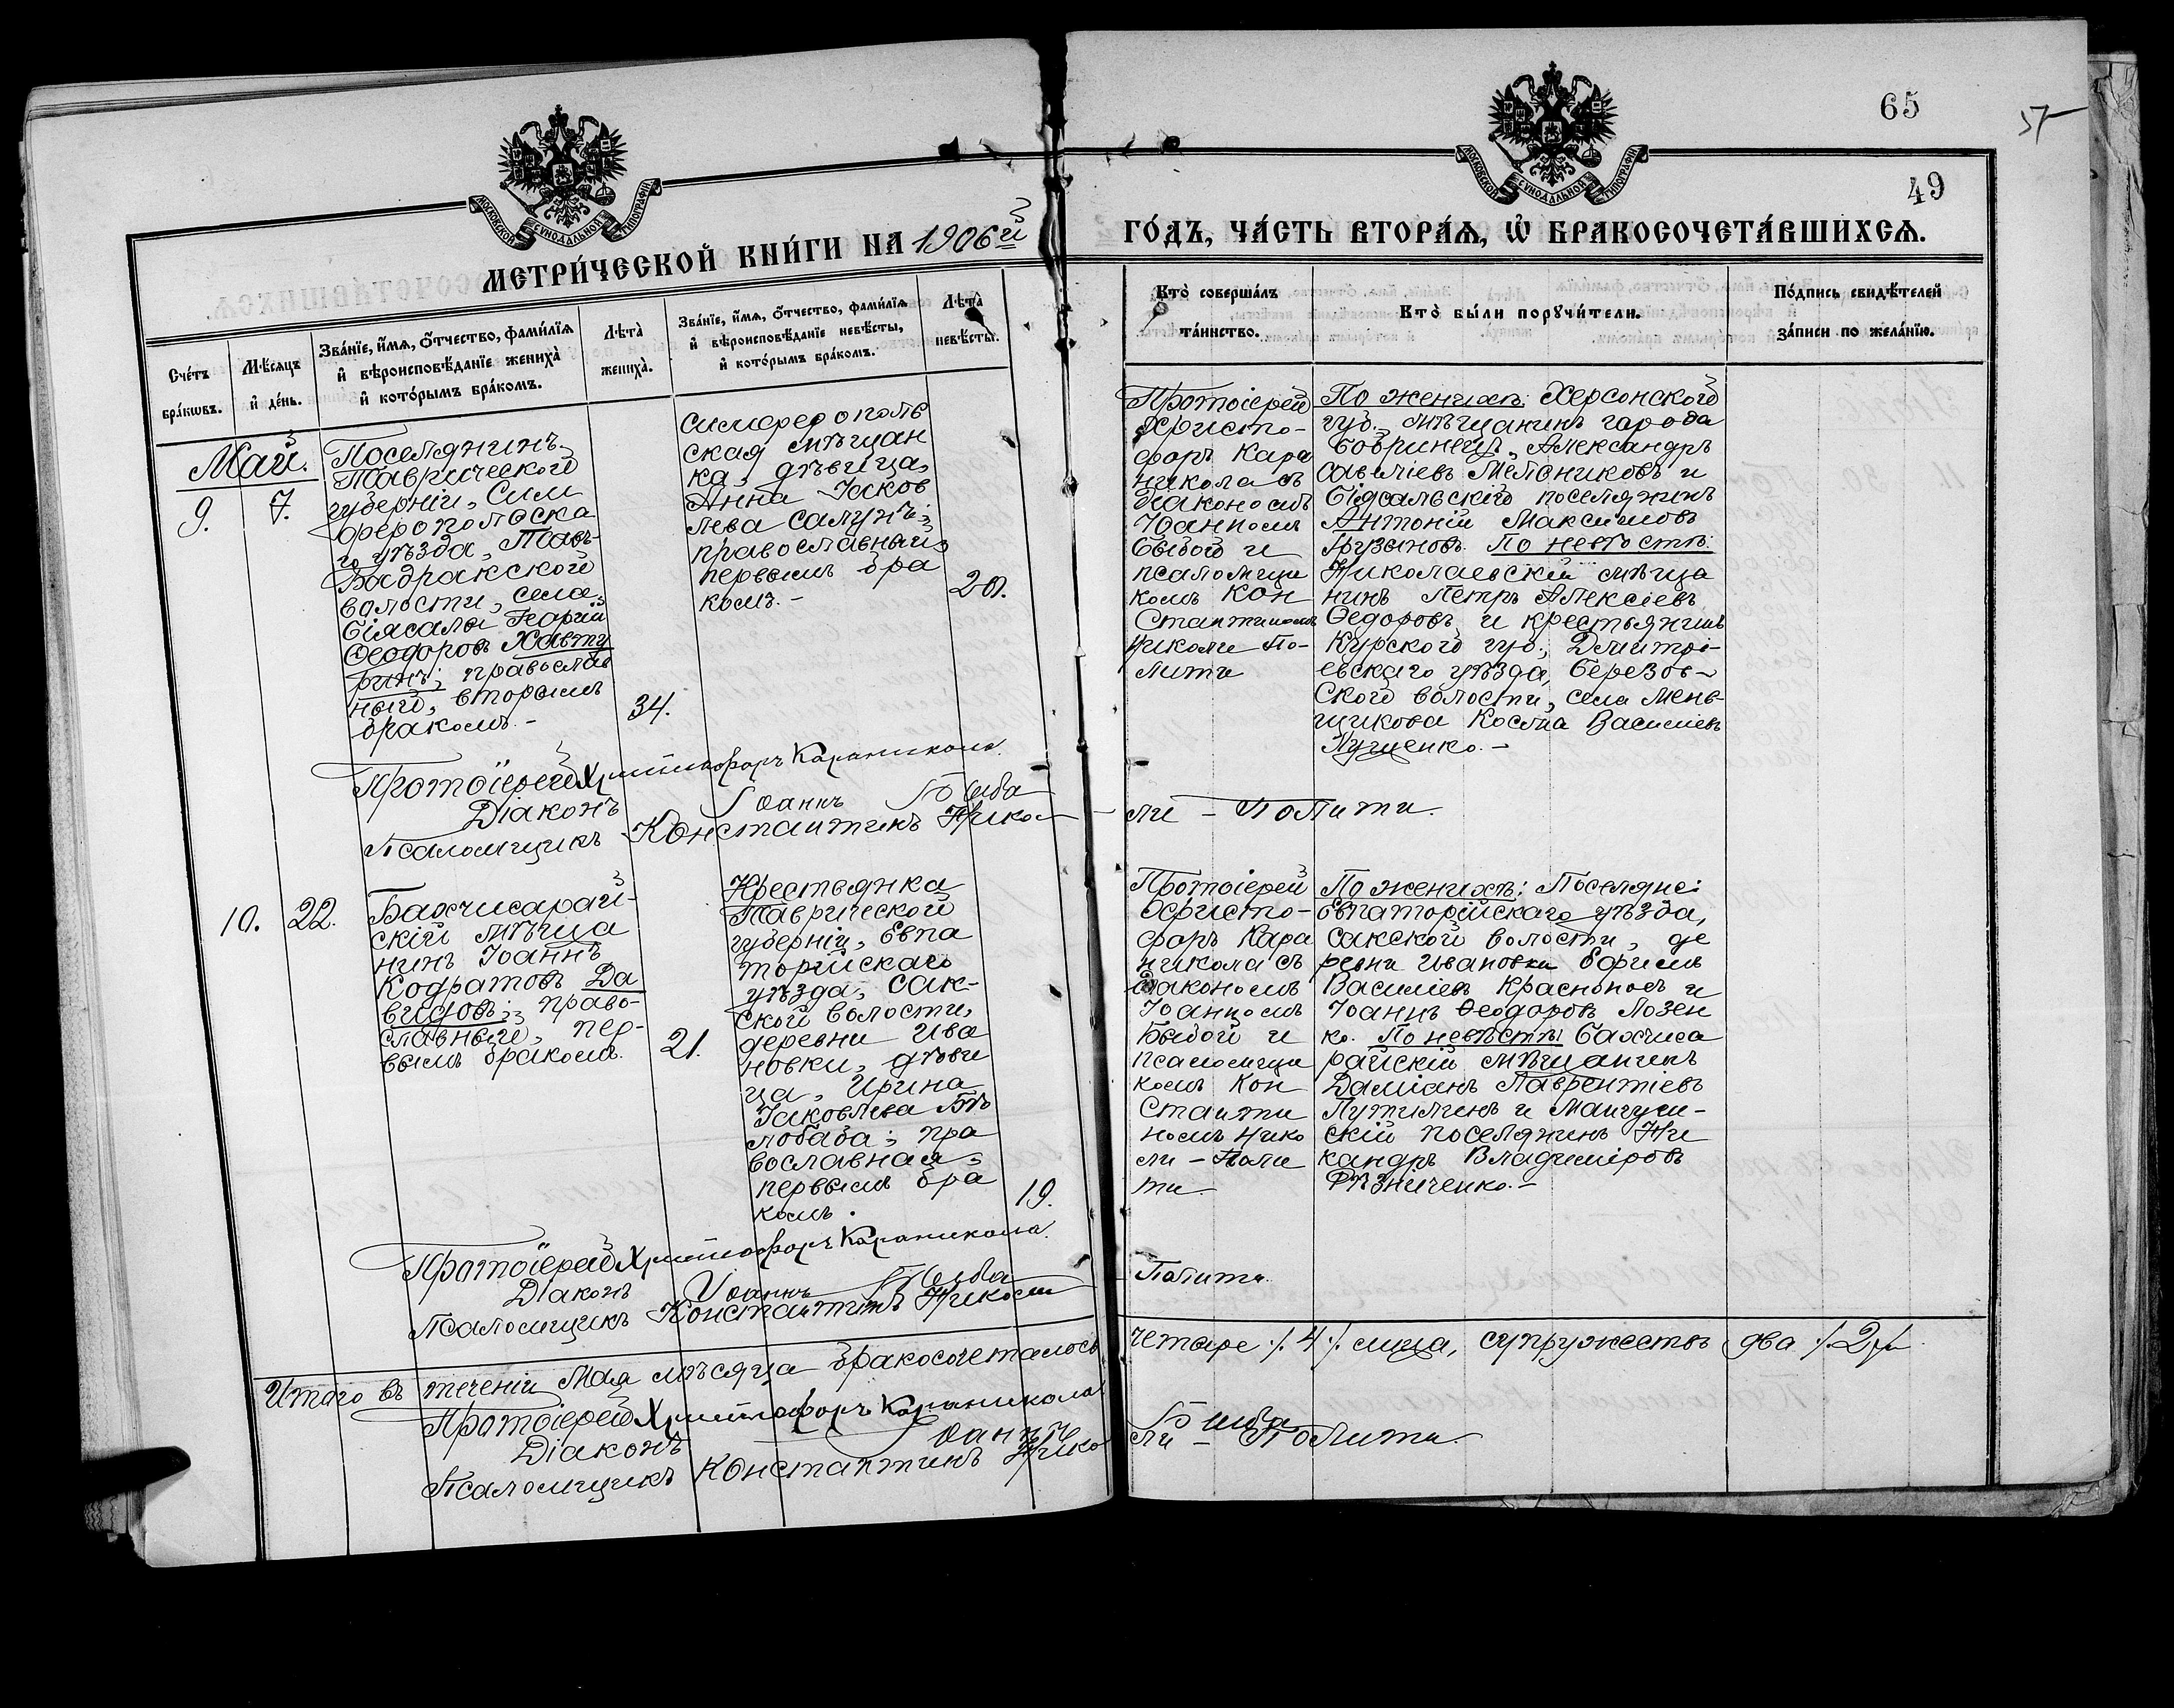 65
57
49
МОСКОВСКОЙ СУНОДАЛЬНОЙ ТИПОГРАФІИ
МОСКОВСКОЙ СУНОДАЛЬНОЙ ТИПОГРАФІИ
МЕТРИ́ЧЕСКОЙ КНИ́ГИ НА 1906й
ГО́ДЪ, ЧА́СТЬ ВТОРА́Ѧ, Ѽ БРАКОСОЧЕТА́ВШИХСѦ.
Сче́тъ
бра́кωвъ.
Мѣ́сяцъ
и҆ де́нь.
Зва́нїе, и҆́мѧ, ѻ҆́тчество, фами́лїѧ
и҆ вѣроисповѣ́данїе жениха̀
и҆ кото́рымъ бра́комъ.
Лѣта̀
жениха̀.
Зва́нїе, и҆́мѧ, ѻ҆́тчество, фами́лїѧ
и҆ вѣроисповѣ́данїе невѣ́сты,
и҆ кото́рымъ бра́комъ.
Лѣта̀
невѣ́сты.
Кто̀ соверша́лъ
та́инство.
Кто̀ бы́ли порꙋчи́тели.
По́дпись свидѣ́телей
за́писи по жела́нїю.
Май.
9.
7.
Поселянинъ
Таврической
губерніи, Сим
ферополюска
го уѣзда,
Бадракской
волости, села
Біясала Георгій
Ѳеодоровъ Хавту
ринъ; православ
ный, вторымъ
бракомъ. –
34.
симферополь
ская мѣщан
ка, дѣвица,
Анна Іаков
лева Салунъ;
православный,
первымъ бра
комъ. –
20.
Протоіерей
Христо-
форъ Кара
никола съ
діакономъ
Іоанномъ
Бибой и
псаломщи
комъ Кон
стантиномъ
Николи По-
лити
По женихѣ: Херсонской
губ., мѣщанинъ города
Бобринецъ, Александръ
Савеліевъ Мельниковъ и
Біясальскій поселянинъ
Антоній Максимовъ
Грузиновъ. По невѣстѣ:
Николаевскій мѣща
нинъ Петръ Алексіевъ
Ѳедоровъ и крестьянинъ
Курской губ., Дмитрі-
евскаго уѣзда, Березов-
ской волости, села Мень-
щикова Косма Васильевъ
Луценко. –
Протоіерей Христофоръ Караникола
Діаконъ Іоаннъ Биба
Псаломщикъ Константинъ Нико-
ли – Полити.
10.
22.
Бахчисарай-
скій мѣща
нинъ Іоаннъ
Кодратовъ Да
видовъ; право-
славный, пер-
вымъ бракомъ.
21.
Крестьянка
Таврической
губерніи, Евпа
торійскаго
уѣзда, Сак-
ской волости,
деревни Ива
новки, дѣви
ца, Ирина
Іаковлева Бѣ
лобаба; пра
вославная,
первымъ бра
комъ.
19.
Протоіерей
Христо-
форъ Кара
никола съ
діакономъ
Іоанномъ
Бибой и
псаломщи
комъ Кон
станти
номъ Нико
ли – Поли
ти.
По женихѣ: Поселяне:
Евпаторійскаго уѣзда,
Сакской волости, де
ревни Ивановки Ефимъ
Василіевъ Краснопос и
Іоаннъ Ѳеодоровъ Лозен
ко. По невѣстѣ: Бахчиса
райскій мѣщанинъ
Даміанъ Лаврентіевъ
Путилинъ и Мангуш-
скій поселянинъ Ни
кандръ Владиміровъ
Рѣзниченко. –
Протоіерей Христофоръ Караникола
Діаконъ Іоаннъ Биба
Псаломщикъ Константинъ Николи
Полити.
Итого въ теченіи Мая мѣсяца бракосочеталось
четыре /. 4 /. лица, супружествъ два /. 2 /.
Протоіерей Христофоръ Караникола
Діаконъ Іоаннъ
Биба
Псаломщикъ Константинъ Нико
ли – Полити.